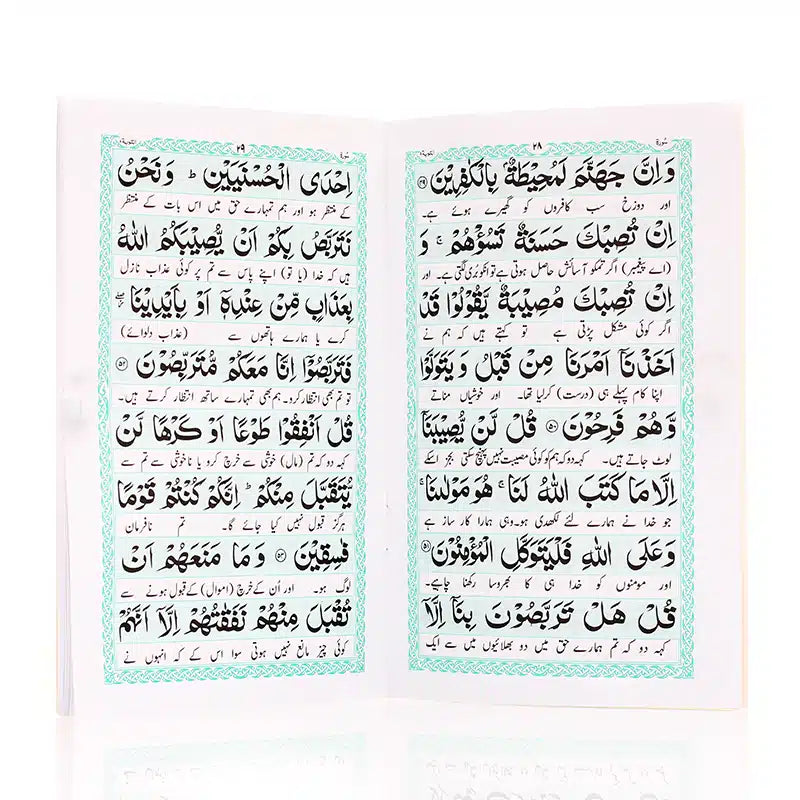 سورة ۲۸ التوبة ۹
وَاِنَّ جَهَنَّمَ لَمُحِيْطَةٌۢ بِالْكٰفِرِيْنَ ۴۹
اور دوزخ سب کافروں کو گھیرے ہوئے ہے۔
اِنْ تُصِبْكَ حَسَنَةٌ تَسُؤْهُمْ ۚ وَ
(اے پیغمبر) اگر تمکو آسائش حاصل ہوتی ہے تو انکو بُری لگتی ہے۔ اور
اِنْ تُصِبْكَ مُصِيْبَةٌ يَّقُوْلُوْا قَدْ
اگر کوئی مشکل پڑتی ہے تو کہتے ہیں کہ ہم نے
اَخَذْنَاۤ اَمْرَنَا مِنْ قَبْلُ وَيَتَوَلَّوْا
اپنا کام پہلے ہی (درست) کرلیا تھا۔ اور خوشیاں مناتے
وَّهُمْ فَرِحُوْنَ ۵۰ قُلْ لَّنْ يُّصِيْبَنَاۤ
لوٹ جاتے ہیں۔ کہہ دو کہ ہم کو کوئی مصیبت نہیں پہنچ سکتی بجز اسکے
اِلَّا مَا كَتَبَ اللّٰهُ لَنَا ۚ هُوَ مَوْلٰىنَا ۚ
جو خدا نے ہمارے لئے لکھدی ہو۔ وہی ہمارا کار ساز ہے
وَعَلَى اللّٰهِ فَلْيَتَوَكَّلِ الْمُؤْمِنُوْنَ ۵۱
اور مومنوں کو خدا ہی کا بھروسا رکھنا چاہیے۔
قُلْ هَلْ تَرَبَّصُوْنَ بِنَاۤ اِلَّاۤ
کہہ دو کہ تم ہمارے حق میں دو بھلائیوں میں سے ایک
سورة ۲۹
اِحْدَى الْحُسْنَيَيْنِ ؕ وَنَحْنُ
کے منتظر ہو اور ہم تمہارے حق میں اس بات کے منتظر
نَتَرَبَّصُ بِكُمْ اَنْ يُّصِيْبَكُمُ اللّٰهُ
ہیں کہ خدا (یا تو) اپنے پاس سے تم پر کوئی عذاب نازل
بِعَذَابٍ مِّنْ عِنْدِهٖۤ اَوْ بِاَيْدِيْنَا
کرے یا ہمارے ہاتھوں سے (عذاب دلوائے)
فَتَرَبَّصُوْۤا اِنَّا مَعَكُمْ مُّتَرَبِّصُوْنَ ۵۲
تو تم بھی انتظار کرو۔ ہم بھی تمہارے ساتھ انتظار کرتے ہیں۔
قُلْ اَنْفِقُوْا طَوْعًا اَوْ كَرْهًا لَّنْ
کہہ دو کہ تم (مال) خوشی سے خرچ کرو یا ناخوشی سے تم سے
يُّتَقَبَّلَ مِنْكُمْ ؕ اِنَّكُمْ كُنْتُمْ قَوْمًا
ہرگز قبول نہیں کیا جائے گا۔ تم نافرمان
فٰسِقِيْنَ ۵۳ وَمَا مَنَعَهُمْ اَنْ
لوگ ہو۔ اور اُن کے خرچ (اموال) کے قبول ہونے سے
تُقْبَلَ مِنْهُمْ نَفَقٰتُهُمْ اِلَّاۤ اَنَّهُمْ
کوئی چیز مانع نہیں ہوتی سوا اس کے کہ انہوں نے